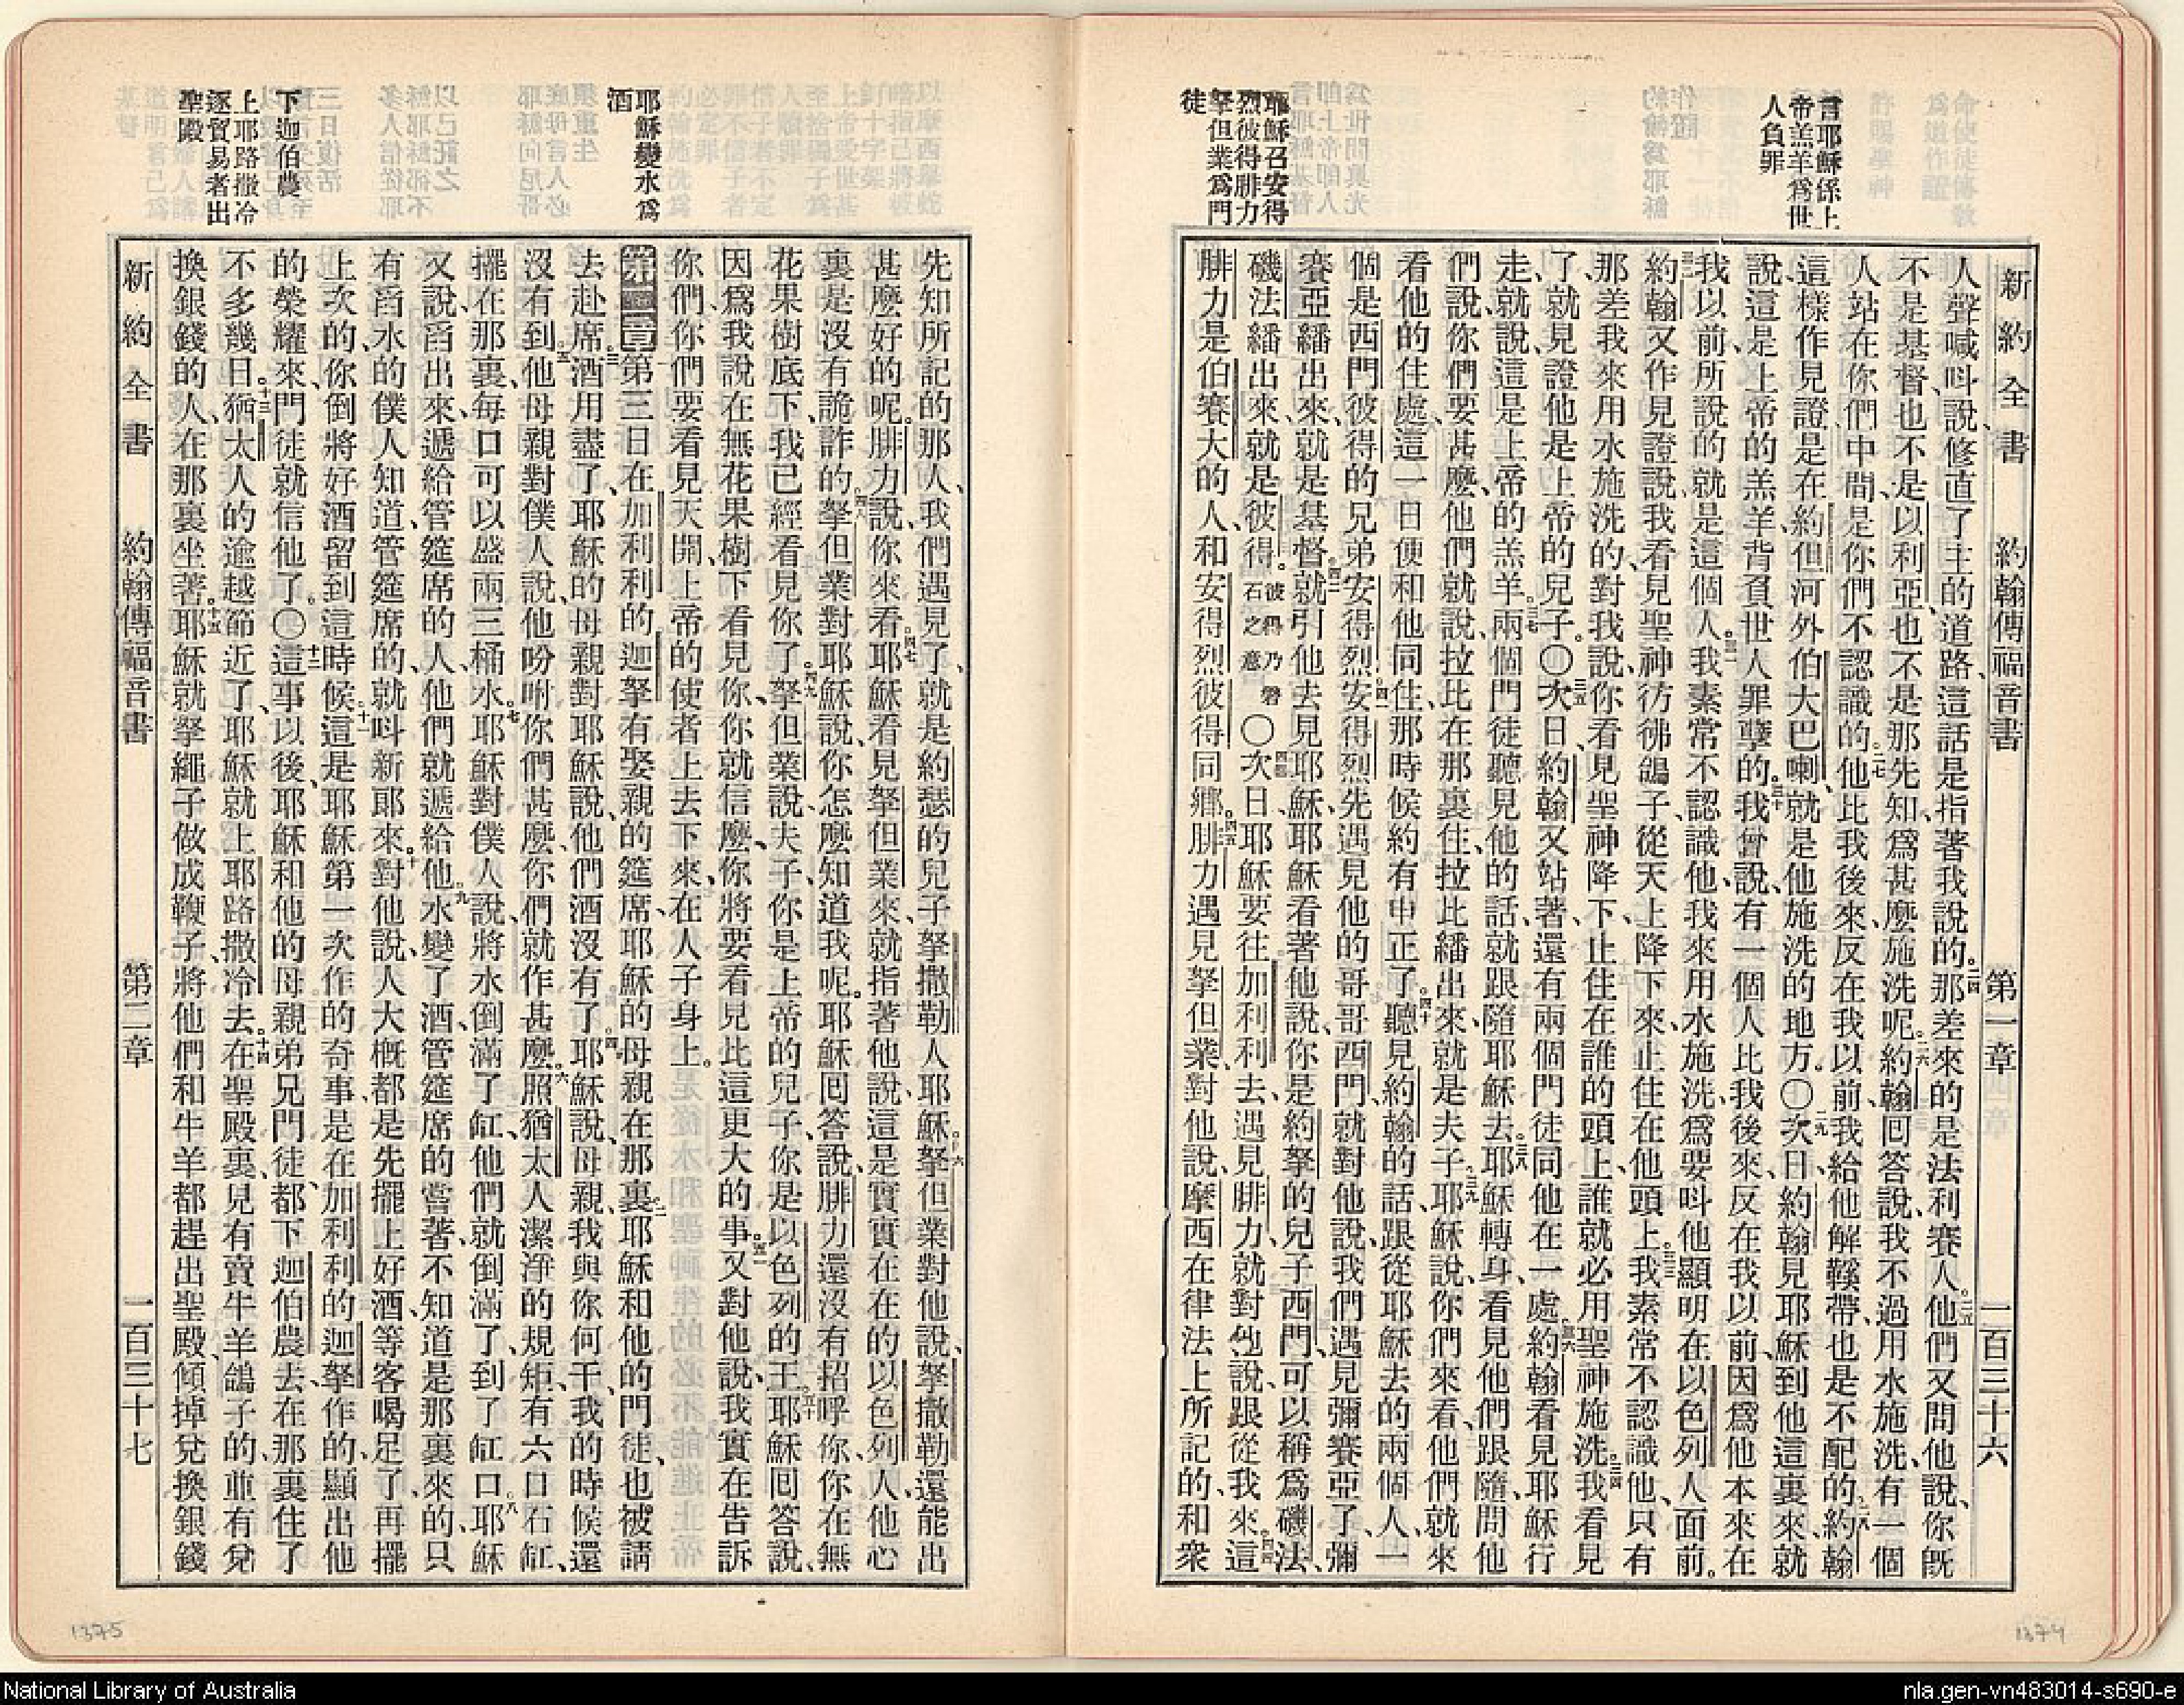 新約全書 約翰傳福音書 第一章 一百三十六
言耶穌係上
帝羔羊爲世
人負罪
耶穌召安得
烈彼得腓力
拏但業爲門
徒
人聲喊呌、說修直了主的道路、這話是指著我說的。二四那差來的是法利賽人。二五他們又問他說、你旣
不是基督、也不是以利亞、也不是那先知、爲甚麼施洗呢。二六約翰回答說、我不過用水施洗、有一個
人站在你們中間、是你們不認識的。二七他比我後來、反在我以前、我給他解鞵帶、也是不配的。二八約翰
這樣作見證、是在約但河外伯大巴喇、就是他施洗的地方。〇二九次日、約翰見耶穌到他這裏來、就
說、這是上帝的羔羊、背負世人罪孽的。三十我曾說、有一個人比我後來、反在我以前、因爲他本來在
我以前、所說的就是這個人。三一我素常不認識他、我來用水施洗、爲要呌他顯明在以色列人面前。
三二約翰又作見證說、我看見聖神彷彿鴿子、從天上降下來、止住在他頭上。三三我素常不認識他、只有
那差我來用水施洗的、對我說、你看見聖神降下、止住在誰的頭上、誰就必用聖神施洗。三四我看見
了、就見證他是上帝的兒子。〇三五次日、約翰又站著、還有兩個門徒同他在一處。三六約翰看見耶穌行
走、就說、這是上帝的羔羊。三七兩個門徒聽見他的話、就跟隨耶穌去。三八耶穌轉身、看見他們跟隨、問他
們說、你們要甚麼、他們就說、拉比在那裏住、拉比繙出來、就是夫子。三九耶穌說、你們來看、他們就來
看他的住處、這一日便和他同住、那時候約有申正了。四十聽見約翰的話、跟從耶穌去的兩個人、一
個是西門彼得的兄弟安得烈。四一安得烈先遇見他的哥哥西門、就對他說、我們遇見彌賽亞了、彌
賽亞繙出來、就是基督。四二就引他去見耶穌、耶穌看著他說、你是約拏的兒子西門、可以稱爲磯法、
磯法繙出來、就是彼得。彼得乃磐石之意〇四三次日、耶穌要往加利利去、遇見腓力、就對他說、跟從我來。四四這
腓力是伯賽大的人、和安得烈彼得同鄉。四五腓力遇見拏但業、對他說、摩西在律法上所記的、和衆
耶穌變水爲
酒
下迦伯農
上耶路撒冷
逐貿易者出
聖殿
先知所記的那人、我們遇見了、就是約瑟的兒子拏撒勒人耶穌。四六拏但業對他說、拏撒勒還能出
甚麼好的呢。腓力說、你來看。四七耶穌看見拏但業來、就指著他說、這是實實在在的以色列人、他心
裏是沒有詭詐的。四八拏但業對耶穌說、你怎麼知道我呢。耶穌回答說、腓力還沒有招呼你、你在無
花果樹底下、我已經看見你了。四九拏但業說、夫子、你是上帝的兒子、你是以色列的王。五十耶穌回答說、
因爲我說在無花果樹下看見你、你就信麼、你將要看見比這更大的事。五一又對他說、我實在告訴
你們、你們要看見天開、上帝的使者上去下來、在人子身上。
第二章一第三日在加利利的迦拏、有娶親的筵席、耶穌的母親在那裏。二耶穌和他的門徒、也被請
去赴席。三酒用盡了、耶穌的母親對耶穌說、他們酒沒有了。四耶穌說、母親、我與你何干、我的時候還
沒有到。五他母親對僕人說、他吩咐你們甚麼、你們就作甚麼。六照猶太人潔淨的規矩、有六口石缸、
擺在那裏、每口可以盛兩三桶水。七耶穌對僕人說、將水倒滿了缸、他們就倒滿了、到了缸口。八耶穌
又說、舀出來、遞給管筵席的人、他們就遞給他。九水變了酒、管筵席的嘗著、不知道是那裏來的、只
有舀水的僕人知道、管筵席的、就呌新郎來。十對他說、人大概都是先擺上好酒、等客喝足了、再擺
上次的、你倒將好酒留到這時候。十一這是耶穌第一次作的奇事、是在加利利的迦拏作的、顯出他
的榮耀來、門徒就信他了。〇十二這事以後、耶穌和他的母親弟兄門徒、都下迦伯農去、在那裏住了
不多幾日。十三猶太人的逾越節近了、耶穌就上耶路撒冷去。十四在聖殿裏、見有賣牛羊鴿子的、並有兌
換銀錢的人、在那裏坐著。十五耶穌就拏繩子做成鞭子、將他們和牛羊都趕出聖殿、傾掉兌換銀錢
新約全書 約翰傳福音書 第二章 一百三十七
1375
1374
National Library of Australia
nla.gen-vn483014-s690-e